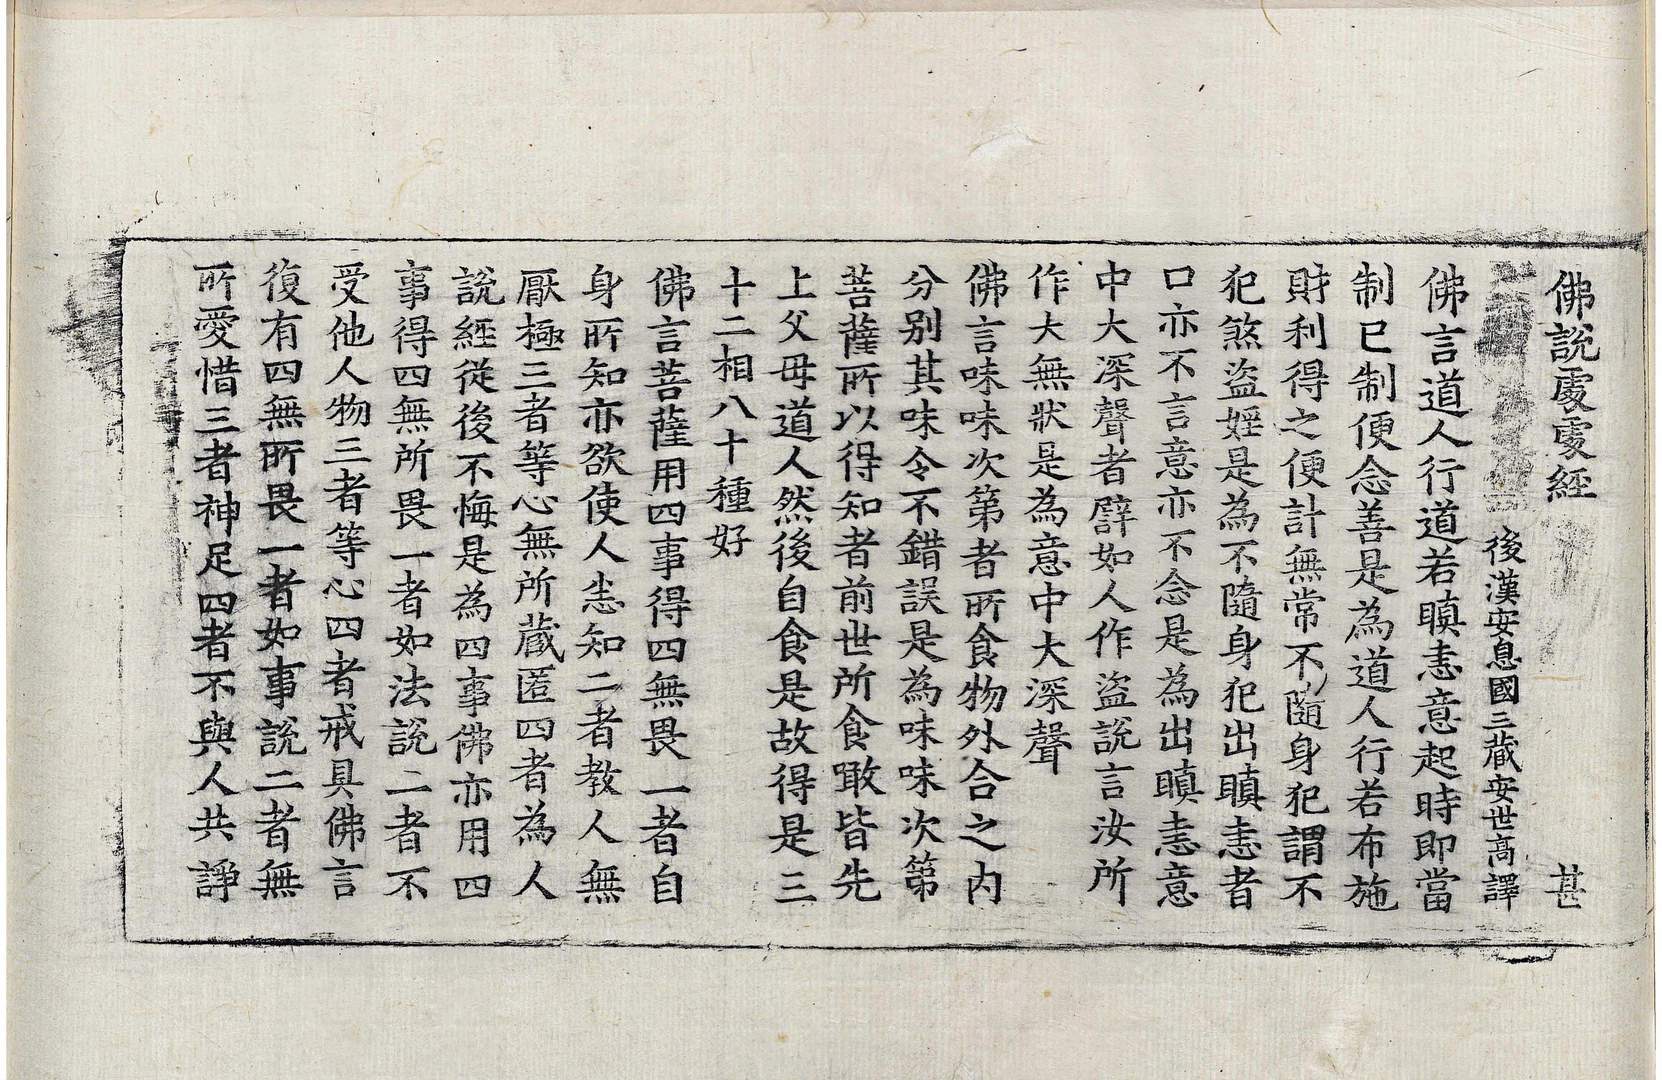 佛說處處經 甚
後漢安息國三藏安世高譯
佛言道人行道若瞋恚意起時即當
制已制便念善是為道人行若布施
財利得之便計無常不隨身犯謂不
犯煞盜婬是為不隨身犯出瞋恚者
口亦不言意亦不念是為出瞋恚意
中大深聲者譬如人作盜說言汝所
作大無狀是為意中大深聲
佛言味味次第者所食物外合之內
分別其味令不錯誤是為味味次第
菩薩所以得知者前世所食噉皆先
上父母道人然後自食是故得是三
十二相八十種好
佛言菩薩用四事得四無畏一者自
身所知亦欲使人恚知二者教人無
厭極三者等心無所藏匿四者為人
說經從後不悔是為四事佛亦用四
事得四無所畏一者如法說二者不
受他人物三者等心四者戒具佛言
復有四無所畏一者如事說二者無
所愛惜三者神足四者不與人共諍